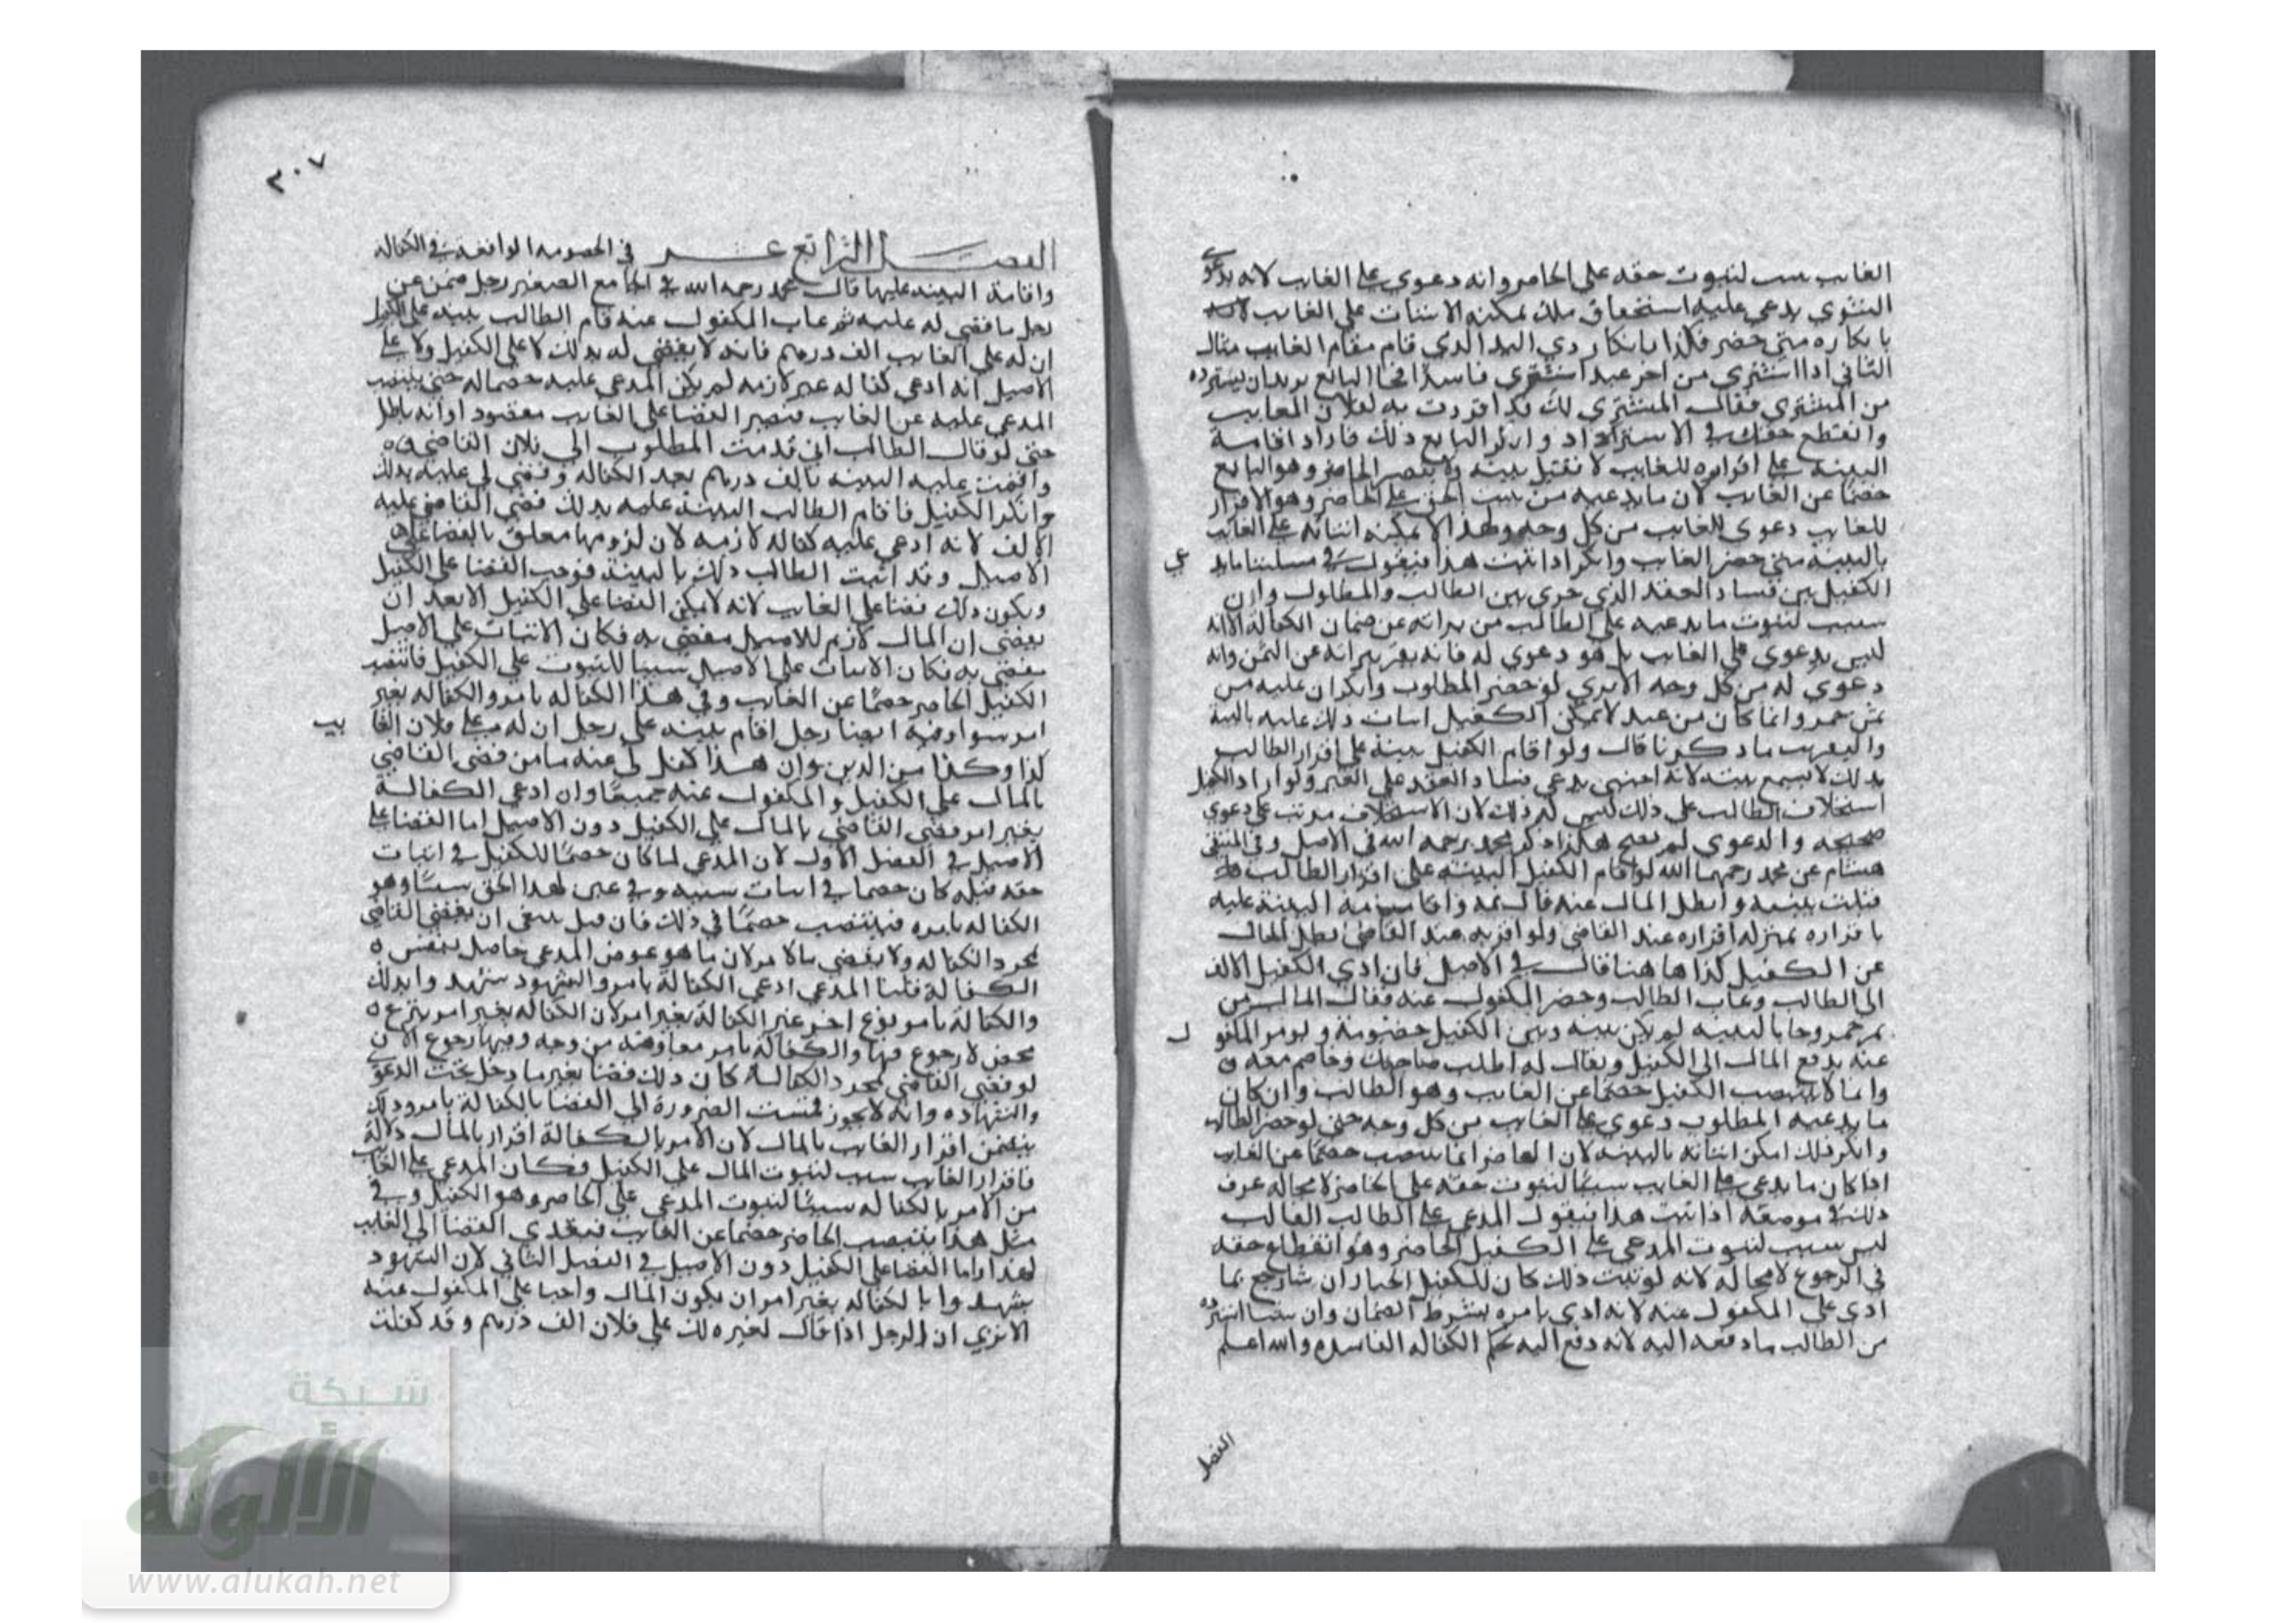 الغايب سبب لثبوت حقه على الحاضر وانه دعوي على الغايب لانه بدعوى
الشوي يدعي عليه استحقاق ملك يمكنه الاثبات على الغايب
بانكاره متى حضر فكذا بانكار ذي اليد الذي قام مقام الغايب مثال
الثاني اذا اشترى من اخر عبدا شرى فاسدا فجا البايع يريدان يسترده
من المشتري فقال المشتري لك قد اقررت به لفلان الغايب
وانقطع حقك في الاسترداد وانكر البايع ذلك فاراد اقامة
البينة على اقراره للغايب لا تقبل بينته ولا ينتصب الحاضر وهو البايع
خصما عن الغايب لان ما يدعيه من سبب الحق على الحاضر وهو الاقرار
للغايب دعوى للغايب من كل وجه ولهذا لا يمكنه اثباته على الغايب
بالبينة متى حضر الغايب وانكر اذا ثبت هذا فنقول في مسئلتنا مايد
عي
الكفيل من فساد العقد الذي جرى بين الطالب والمطلوب وان
سبب لثبوت ما يدعيه على الطالب من براته عن ضمان الكفالة الا انه
ليس بدعوى على الغايب بل هو دعوي له فانه يقر ببراته عن الثمن وانه
دعوى له من كل وجه الا يري لو حضر المطلوب وانكر ان عليه من
ثمن خمر وانما كان من عبد لا يمكن الكفيل اثبات ذلك عليه بالبينة
والتقريب ما ذكرنا قال ولو اقام الكفيل بينة على اقرار الطالب
بذلك لا يسمع بينته لانه اجنبي يدعي فساد العقد على الغير ولو اراد الكفيل
استحلاف الطالب على ذلك ليس له ذلك لان الاستحلاف مرتب على دعوي
صحيحه والدعوى لم تصح هكذا ذكر محمد رحمه الله في الاصل وفي المنتقى
هشام عن محمد رحمهما الله لو اقام الكفيل البينة على اقرار الطالب
قبلت بينته وابطل المال عنه قال محمد وانما البينة عليه
باقراره بمنزلة اقراره عند القاضي ولو اقر به عند القاضي بطل المال
عن الكفيل كذا هاهنا قال في الاصل فان ادي الكفيل الالف
الى الطالب وغاب الطالب وحضر المكفول عنه فقال المال من
ثمن خمر وجا بالبينه لم يكن بينه وبين الكفيل خصومة ويومر المكفو
ل
عنه بدفع المال الى الكفيل ويقال له اطلب صاحبك وخاصم معه
وانما لا ينتصب الكفيل خصما عن الغايب وهو الطالب وان كان
ما يدعيه المطلوب دعوى على الغايب من كل وجه حتى لو حضر الطالب
وانكر ذلك امكن اثباته بالبينه لان الحاضر انما ينتصب خصما عن الغايب
اذا كان ما يدعى على الغايب سببا لثبوت حقه على الحاضر لا محاله عرف
ذلك في موضعه اذا ثبت هذا فنقول المدعي على الطالب الغايب
ليس سبب لثبوت المدعى على الكفيل الحاضر وهو انقطاع حقه
في الرجوع لا محاله لانه لو ثبت ذلك كان للكفيل الخيار ان شا رجع بما
ادى على المكفول عنه لانه ادى بامره بشرط الضمان وان شا استرده
من الطالب ما دفعه اليه لانه دفع اليه بحكم الكفاله الفاسده والله اعلم
الفصل
٢٠٧
الفصل الرابع عشر في الخصومه الواقعه في الكفاله
واقامة البينه عليها قال محمد رحمه الله في الجامع الصغير رجل ضمن عن
رجل ما قضي له عليه ثم غاب المكفول عنه فقام الطالب بينه على الكفيل
ان له على الغايب الف درهم فانه لا يقضي له بذلك لا على الكفيل ولا على
الاصيل انه ادعى كفاله غير لازمه لم يكن المدعى عليه خصما له حتى ينتصب
المدعى عليه عن الغايب فتصير القضا على الغايب مقصودا وانه باطل
حتى لو قال الطالب اني قدمت المطلوب الى فلان القاضي
واقمت عليه البينه بالف درهم بعد الكفاله وقضى لي عليه بذلك
وانكر الكفيل فاقام الطالب البينة عليه بذلك قضى القاضي عليه
الالف لانه ادعى عليه كفاله لازمه لان لزومها معلق بالقضا على
الاصيل وقد اثبت الطالب ذلك بالبينة فوجب القضا على الكفيل
ويكون ذلك قضا على الغايب لانه لا يمكن القضا على الكفيل الا بعد ان
يقضى ان المال لازم للاصيل مقضي به فكان الاثبات على الاصيل
مقضي به فكان الاثبات على الاصيل سببا للثبوت على الكفيل فانتصب
الكفيل الحاضر خصما عن الغايب وفي هذا الكفاله بامر والكفاله بغير
امر سوا وفيه ايضا رجل اقام بينه على رجل ان له على فلان الغا
يب
كذا وكذا من الدين وان هذا كفيل لي عنه بامن قضى القاضي
بالمال على الكفيل والمكفول عنه جميعا وان ادعى الكفالة
بغير امر قضى القاضي بالمال على الكفيل دون الاصيل اما القضا على
الاصيل في الفصل الاول لان المدعي لما كان خصما للكفيل في اثبات
حقه قبله كان خصما في اثبات سببه وفي عين لهذا الحق سببا وهو
الكفاله بامره فينتصب خصما في ذلك فان قيل ينبغي ان يقضي القاضي
بمجرد الكفاله ولا يقضي بالامر لان ما هو عوض المدعي حاصل بنفس
الكفالة قلنا المدعي ادعى الكفالة بامر والشهود شهدوا بذلك
والكفالة بامر نوع اخر غير الكفالة بغير امر لان الكفاله بغير امر تبرع
محض لا رجوع فيها والكفالة بامر معاوضه من وجه وفيها رجوع الان
لو قضى القاضي بمجرد الكفالة كان ذلك قضا بغير ما دخل تحت الدعوى
والشهاده وانه لا يجوز فمست الضرورة الى القضا بالكفالة بامر وذلك
يتضمن اقرار الغايب بالمال لان الامر بالكفالة اقرار بالمال دلالة
فاقرار الغايب سبب لثبوت المال على الكفيل فكان المدعى على الغايب
من الامر بالكفاله سببا لثبوت المدعى على الحاضر وهو الكفيل وفي
مثل هذا ينتصب الحاضر خصما عن الغايب فيتعدى القضا الى الغايب
لهذا واما القضا على الكفيل دون الاصيل في الفصل الثاني لان الشهود
يشهدوا بالكفاله بغير امر ان يكون المال واجبا على المكفول عنه
الا تري ان الرجل اذا قال لغيره لك على فلان الف درهم وقد كفلت
شبكة
الألوكة
www.alukah.net